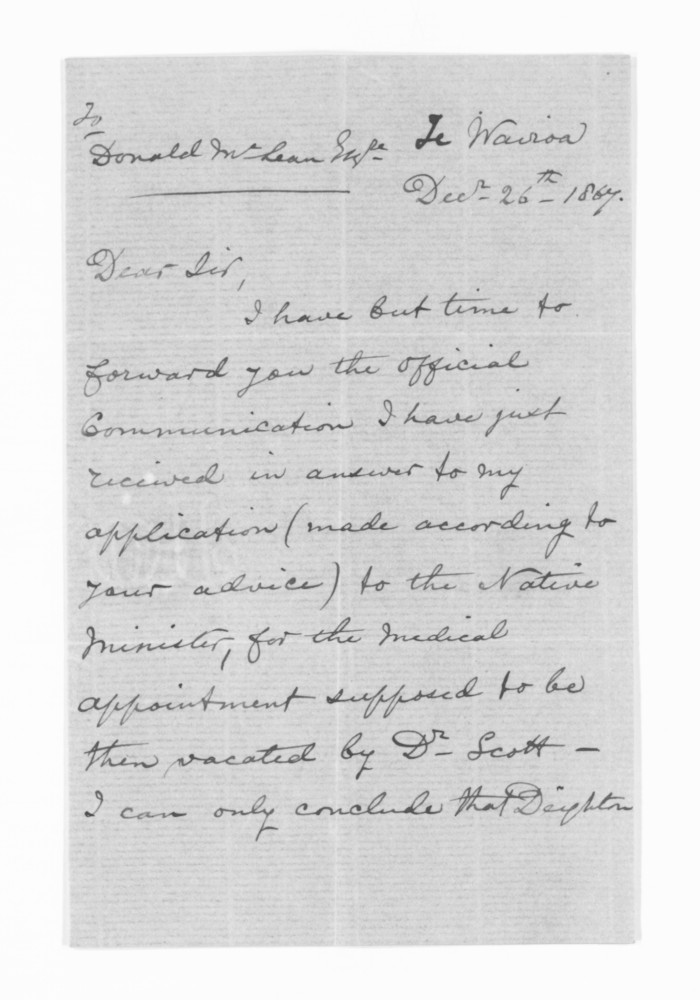 To
Donald McLean Esqre
Te Wairoa
Decr 26th 1867.
Dear Sir,
I have but time to
forward you the official
Communication I have just
received in answer to my
application (made according to
your advice) to the Native
Minister, for the Medical
appointment supposed to be
then vacated by Dr Scott —
I can only conclude that Deighton